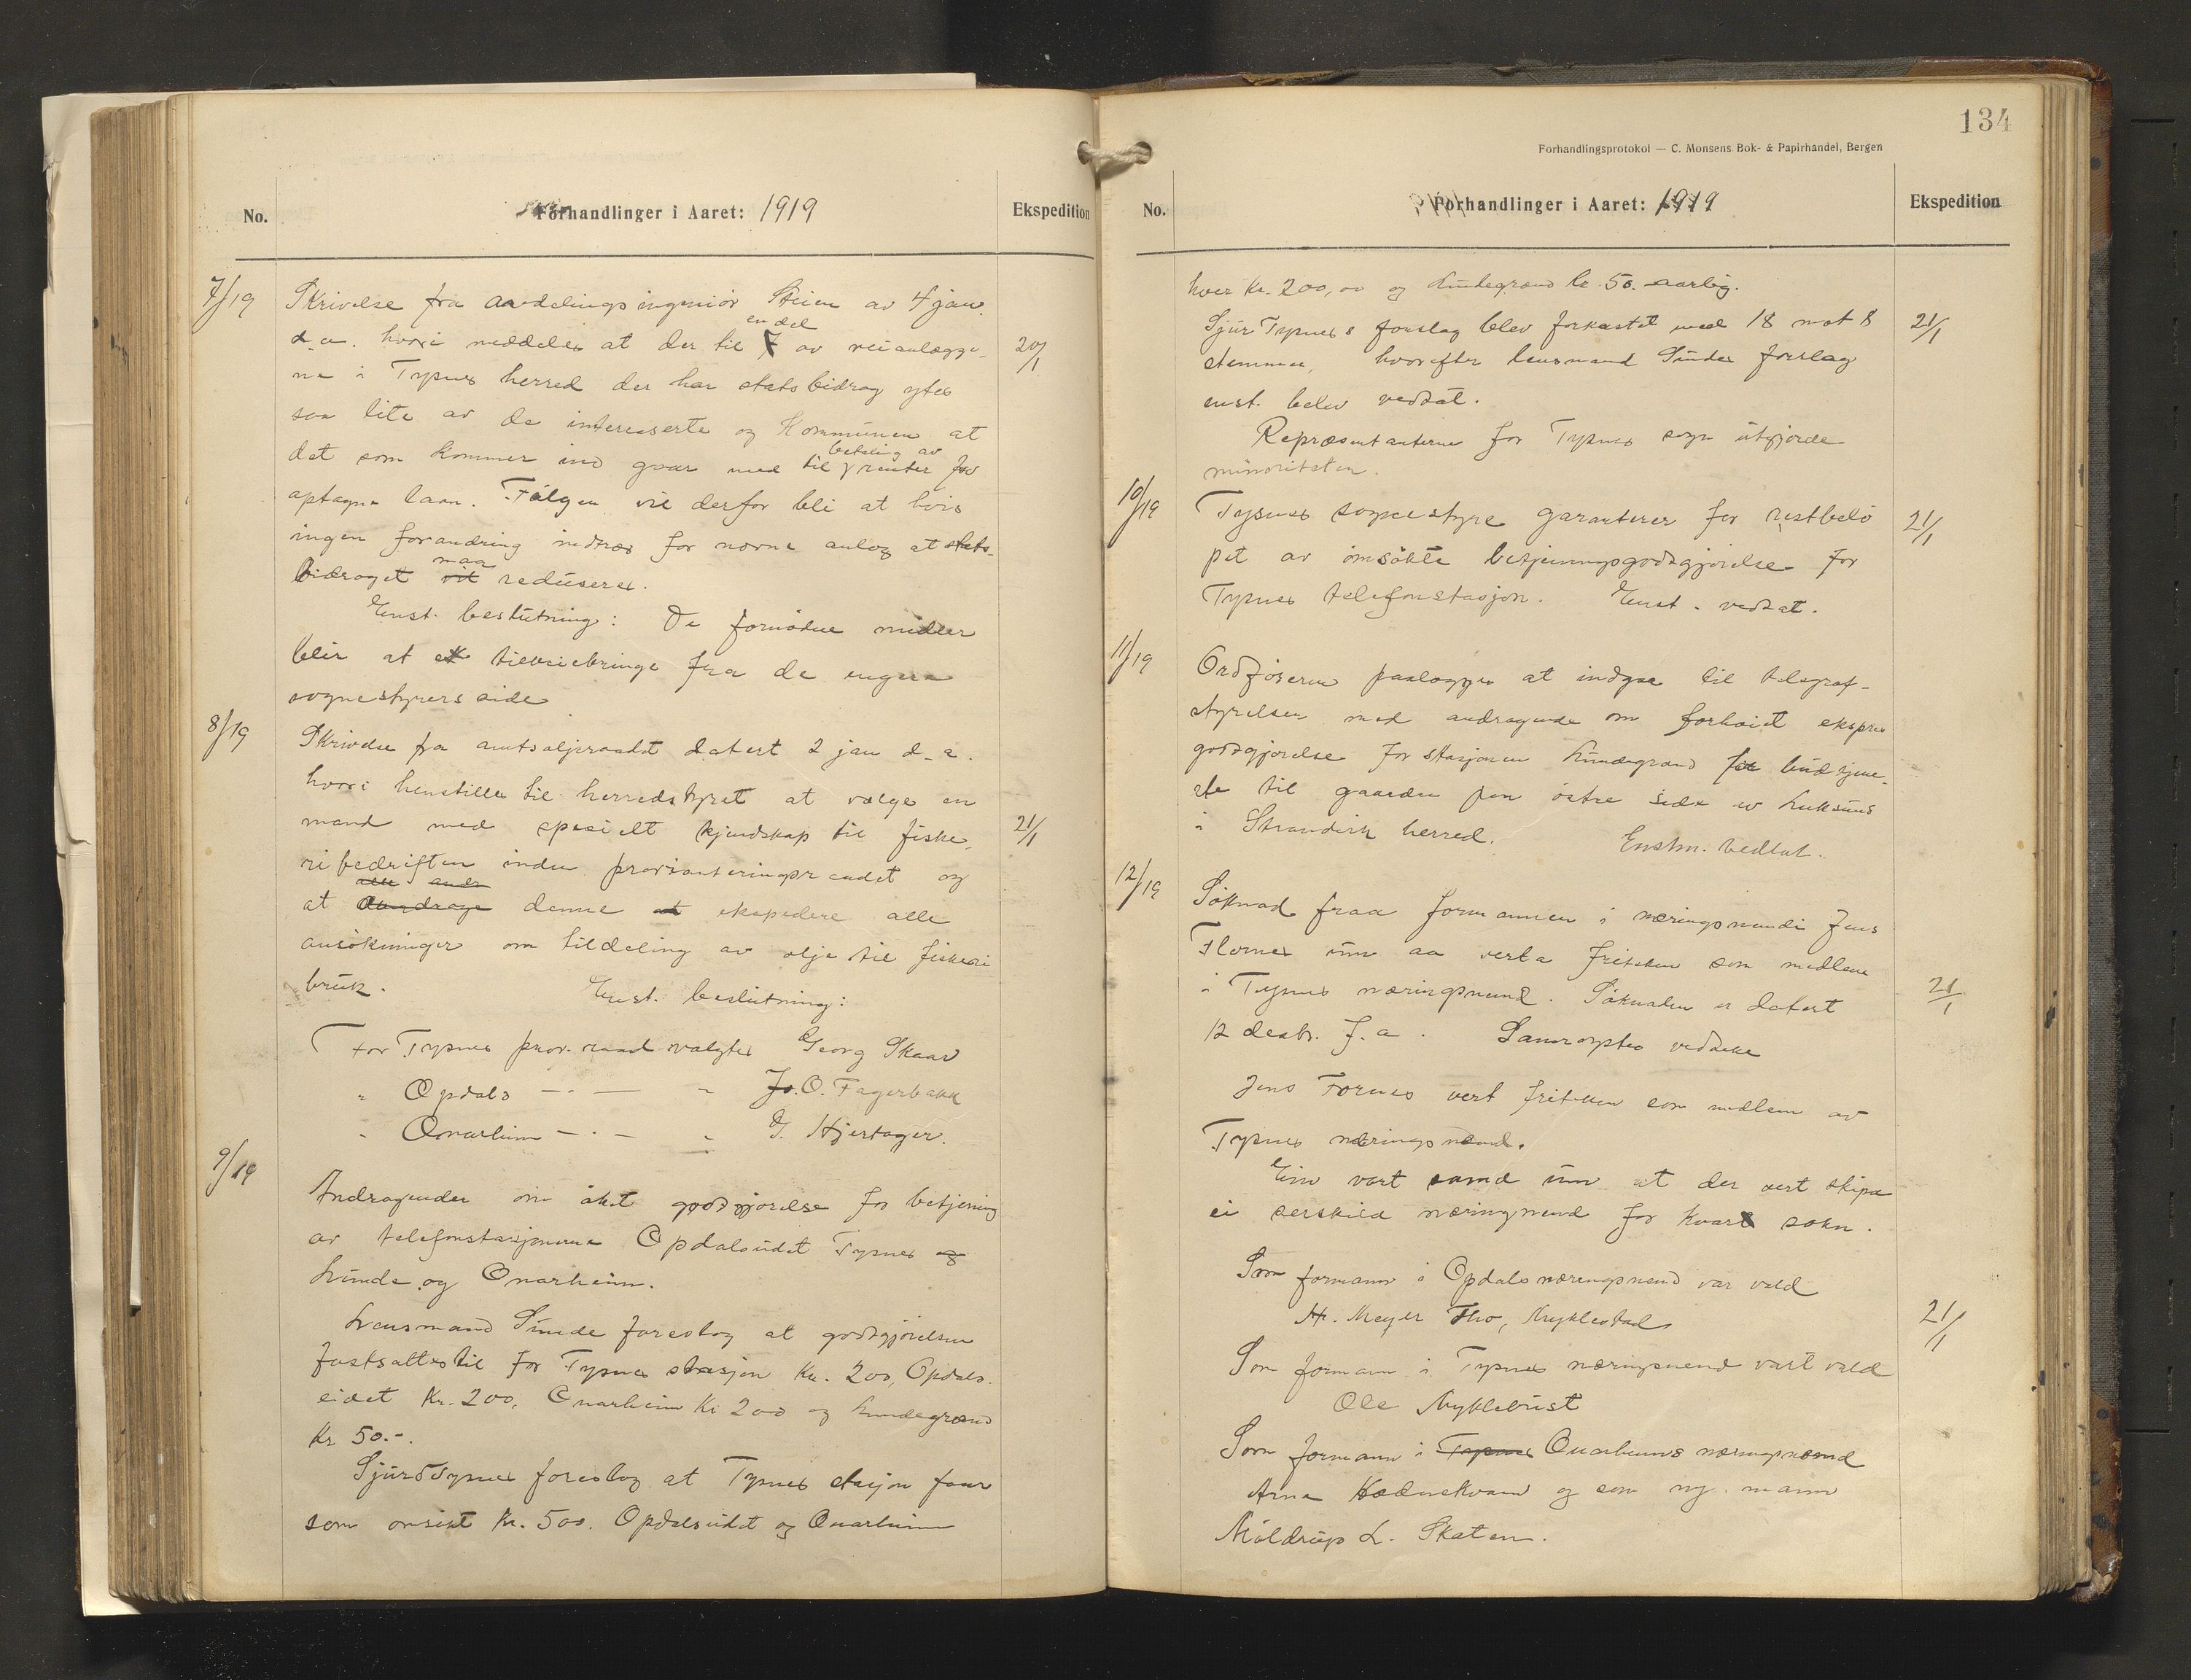 No. Forhandlinger i Aaret: 1919 Ekspedition
7/19 Skrivelse fra avdelingsingeniør Steien av 4 jan.
d.a. hvori meddeles at der til en del av veianlægge- 20/1
ne i Tysnes herred der har statsbidrag ytes
saa lite av de interesserte og Kommunen at
det som kommer ind gaar med til betaling av renter for
optagne laan. Følgen vil derfor bli at hvis
ingen forandring indtræ for norne anlæg at stats-
bidraget maa reduseres.
Enst. beslutning: De fornødne midler
blir at tilveiebringe fra de engere
sognestyrers side
8/19 Skrivelse fra amtsoljeraadet datert 2 jan d.a.
hvori henstilles til herredstyret at vælge en
mand med spesielt kjendskap til fiske- 21/1
ribedriften inden provianteringsraadet og
at denne ekspedere alle
ansøkninger om tildeling av olje til fiskeri
bruk. Enst. beslutning:
For Tysnes prov. raad valgtes Georg Skaar
" Opdals — · — " Jo. O. Fagerbakk
" Onarheim — · — " G. Hjertager.
9/19 Andragender om øket godtgjørelse for betjening
av telefonstasjonerne Opdalseidet Tysnes og
Lunde og Onarheim.
Lensmand Sunde foreslog at godtgjørelsen
fastsattes til for Tysnes stasjon Kr. 200, Opdals-
eidet Kr. 200, Onarheim Kr 200 og Lundegrend
Kr 50.-.
Sjurd Tysnes foreslog at Tysnes stasjon faar
som ansøkt Kr. 500. Opdalseidet og Onarheim
134
Forhandlingsprotokol — C. Monsens Bok- & Papirhandel, Bergen
No. Forhandlinger i Aaret: 1919 Ekspedition
hver Kr. 200,00 og Lundegrend kr. 50. aarlig.
Sjur Tysnes's forslag blev forkastet med 18 mot 8 21/1
stemmer, hvorefter lensmand Sundes forslag
enst. belev vedtat.
Repræsentanterne for Tysnes sogn utgjorde
minoriteten.
10/19 Tysnes sognestyre garanterer for restbelø 21/1
pet av omsøkte betjeningsgodtgjørelse for
Tysnes telefonstasjon. Enst. vedtat.
11/19 Ordføreren paalægges at indgaa til telegraf-
styrelsen med andragende om forhøiet ekspres
godtgjørelse for stasjonen Lundegrend for budtjene-
ste til gaarden paa østre side av Luksund
i Strandvik herred. Enstm. vedtat.
12/19 Søknad fraa formannen i næringsnemdi Jens
Flornes um aa verta friteken som medlem
i Tysnes næringsnemd. Søknaden er datert 21/1
12 desbr. f.a. Samrøystes vedtake
Jens Fornes vert friteken som medlem av
Tysnes næringsnemd.
Ein vart samd um at der vert skipa
ei serskild næringnemd for kvart sokn.
Som formann i Opdals næringsnemd var vald
H. Meyer Tho, Myklestad 21/1
Som formann i Tysnes næringsnemd vart vald
Ole Myklebust
Som formann i Tysnes Onarheims næringsnemd
Arne Hædnekvam og som ny mann
Møldrup L. Skaten.